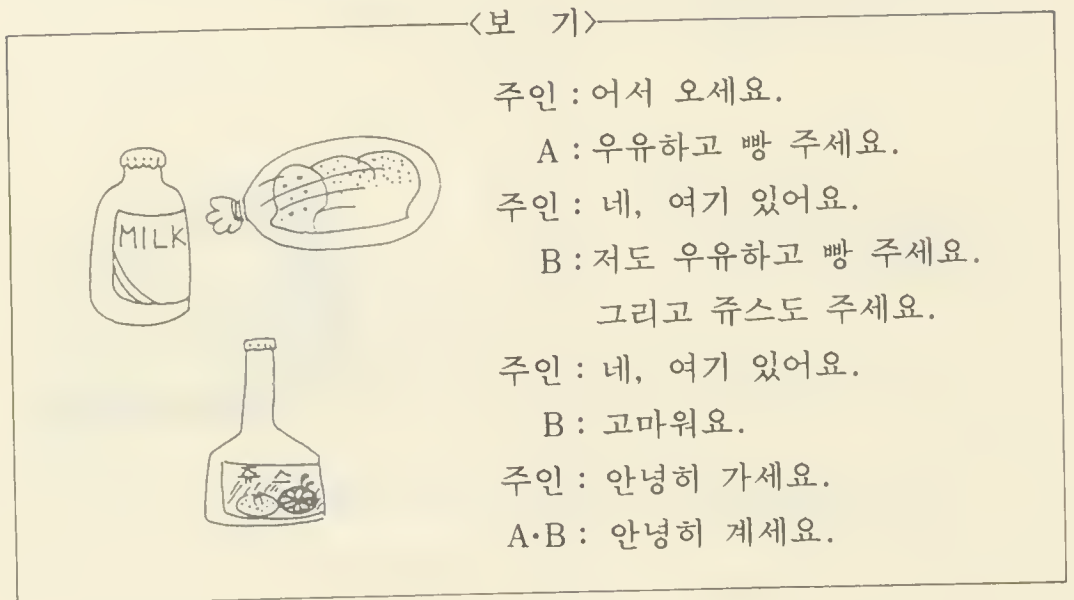 <보 기>
주인 : 어서 오세요.
A : 우유하고 빵 주세요.
주인 : 네, 여기 있어요.
B : 저도 우유하고 빵 주세요.
그리고 쥬스도 주세요.
주인 : 네, 여기 있어요.
B : 고마워요.
주인 : 안녕히 가세요.
A·B : 안녕히 계세요.
MILK
쥬스